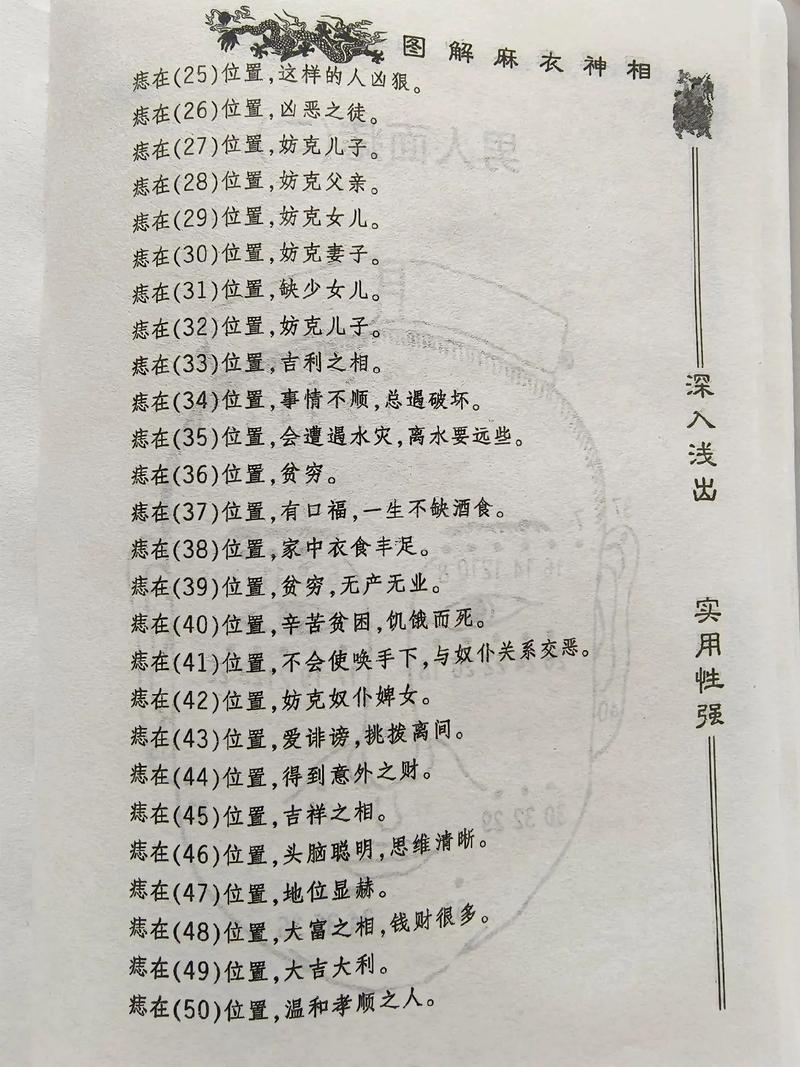 图解麻衣神相
痣在(25)位置,这样的人凶狠。
痣在(26)位置,凶恶之徒。
痣在(27)位置,妨克儿子。
痣在(28)位置,妨克父亲。
痣在(29)位置,妨克女儿。
痣在(30)位置,妨克妻子。
痣在(31)位置,缺少女儿。
痣在(32)位置,妨克儿子。
痣在(33)位置,吉利之相。
痣在(34)位置,事情不顺,总遇破坏。
痣在(35)位置,会遭遇水灾,离水要远些。
痣在(36)位置,贫穷。
痣在(37)位置,有口福,一生不缺酒食。
痣在(38)位置,家中衣食丰足。
痣在(39)位置,贫穷,无产无业。
痣在(40)位置,辛苦贫困,饥饿而死。
痣在(41)位置,不会使唤手下,与奴仆关系交恶。
痣在(42)位置,妨克奴仆婢女。
痣在(43)位置,爱诽谤,挑拨离间。
痣在(44)位置,得到意外之财。
痣在(45)位置,吉祥之相。
痣在(46)位置,头脑聪明,思维清晰。
痣在(47)位置,地位显赫。
痣在(48)位置,大富之相,钱财很多。
痣在(49)位置,大吉大利。
痣在(50)位置,温和孝顺之人。
深入浅出
实用性强